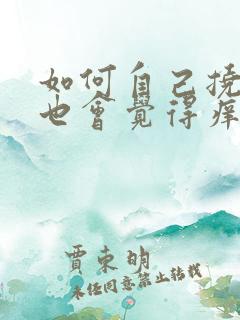 如何自己挠
也會覺得痒
贾東明
未经同意禁止转载